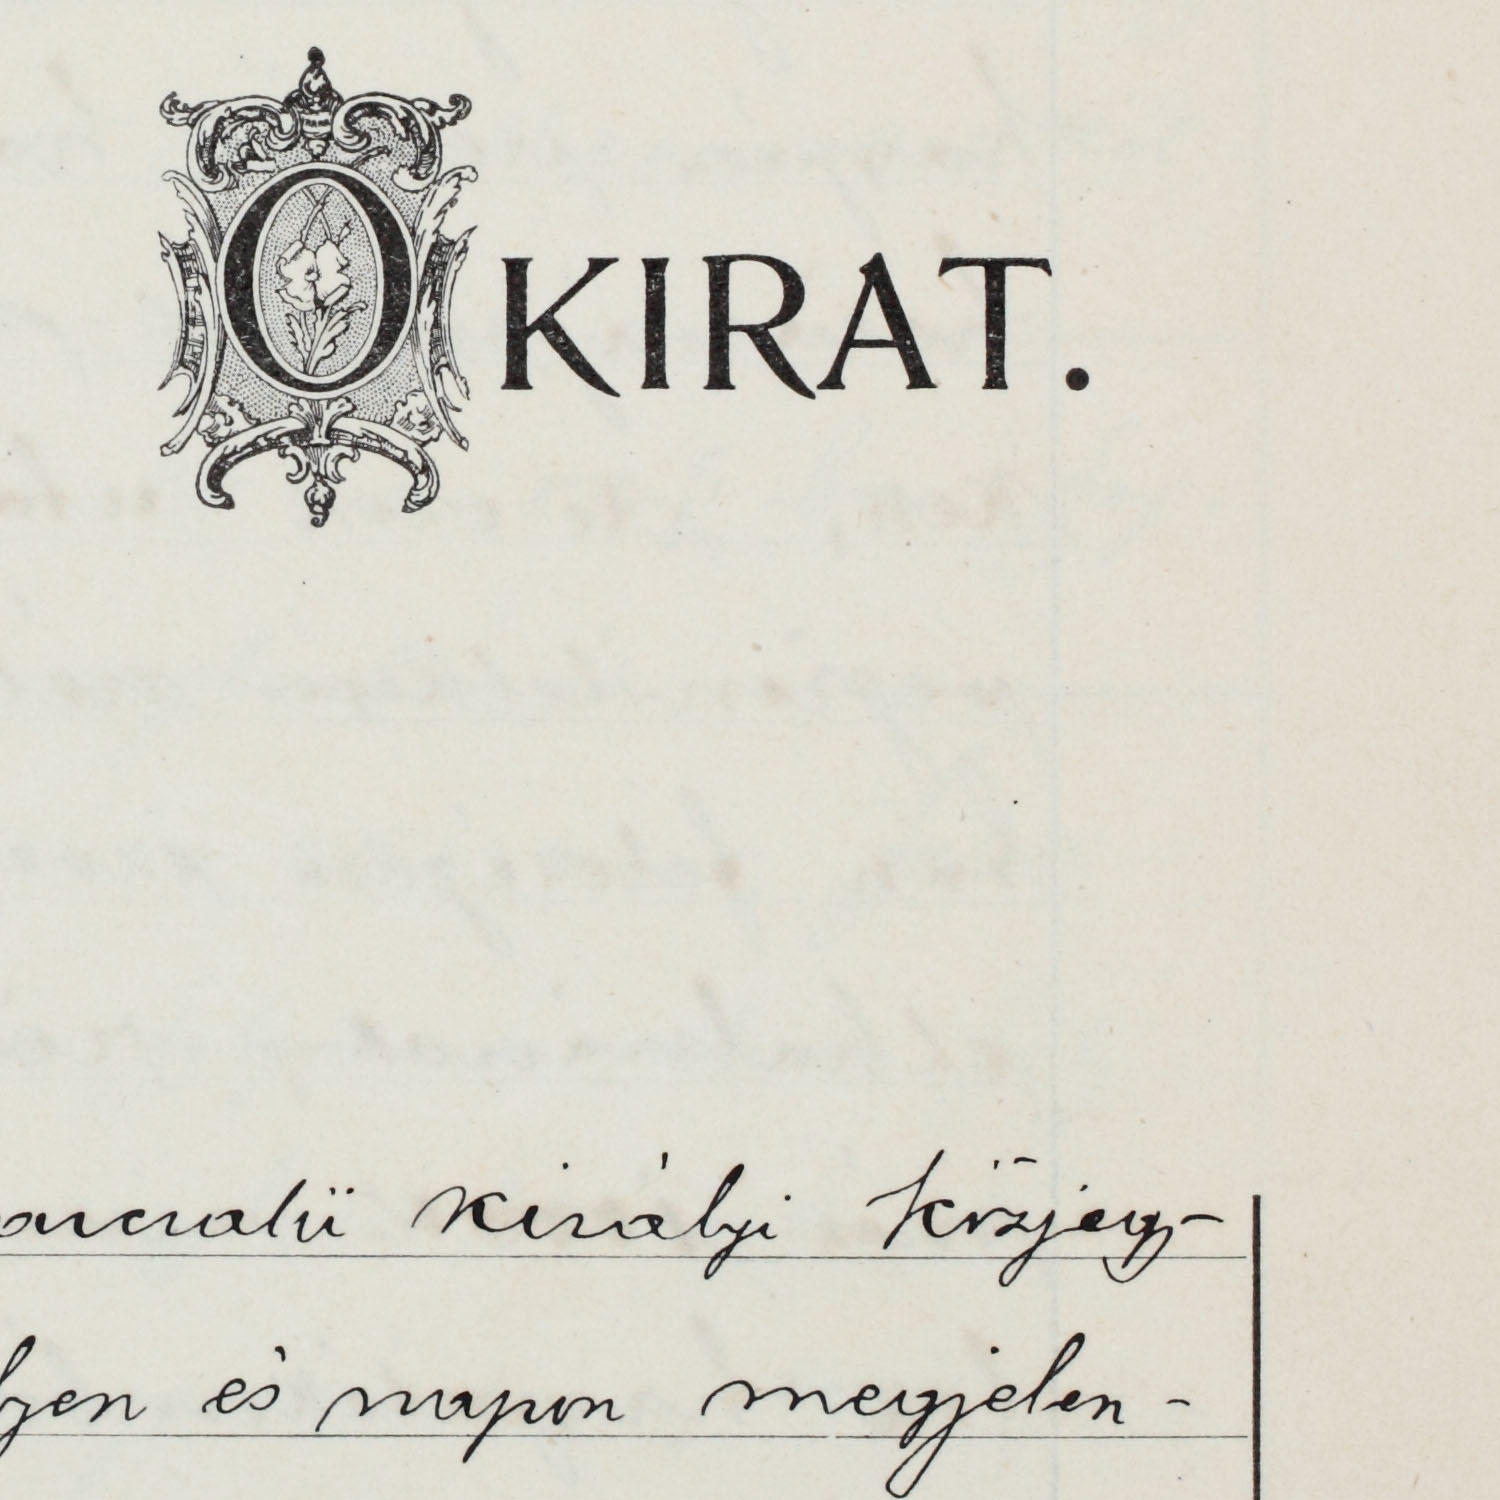 OKIRAT.
királyi közjegy-
lyen és napon megjelen-